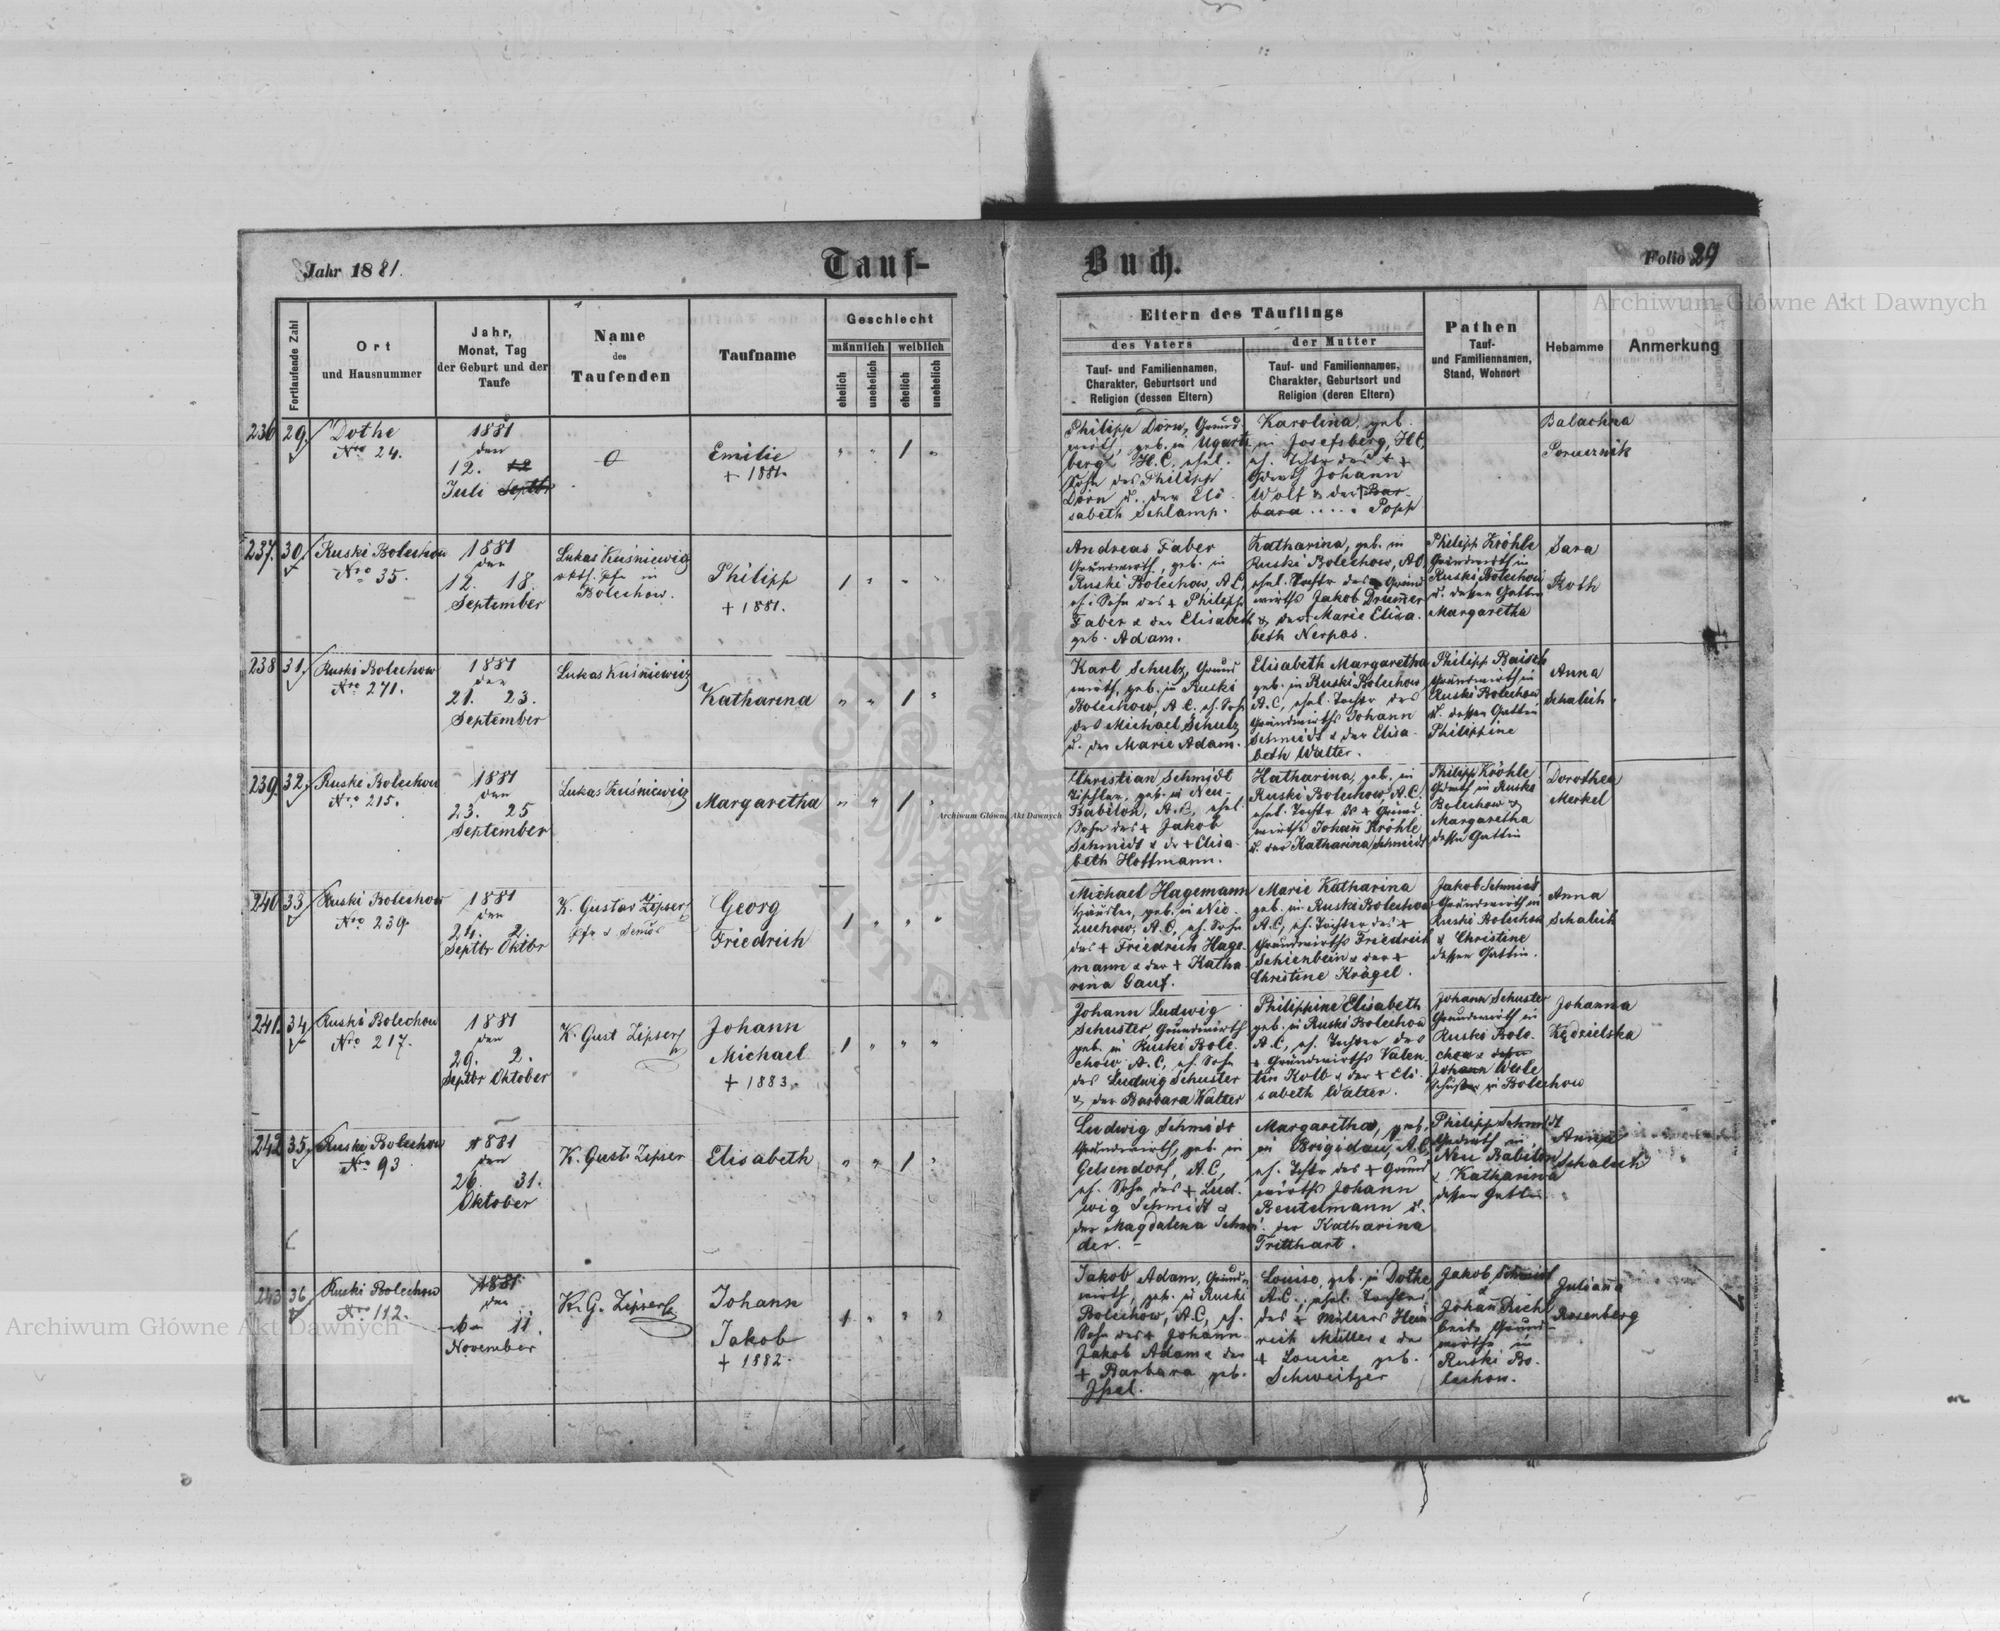 Jahr 1881.
Tauf-
Buch.
Folio 29
Archiwum Główne Akt Dawnych
Fortlaufende Zahl
Ort
und Hausnummer
Jahr,
Monat, Tag
der Geburt und der
Taufe
Name
des
Taufenden
Taufname
Geschlecht
männlich
weiblich
ehelich
unehelich
ehelich
unehelich
Eltern des Täuflings
des Vaters
der Mutter
Tauf- und Familiennamen,
Charakter, Geburtsort und
Religion (dessen Eltern)
Tauf- und Familiennamen,
Charakter, Geburtsort und
Religion (deren Eltern)
Pathen
Tauf-
und Familiennamen,
Stand, Wohnort
Hebamme
Anmerkung
236 29.
Dothe
Nro 24.
1881
den
12. 12
Juli Septbr
Emilie
+ 1881.
" " 1 "
Philipp Dörn, Grund
wirth, geb. in Ugarts
berg, H.C., ehel.
Sohn des Philipp
Dörn u. der Eli
sabeth Schlamp.
Karolina, geb.
in Josefsberg, H.C.
eh. Tochter des +
Johann
Wolf & der + Bar-
bara ..... Popp
Balachna
237. 30.
Ruski Bolechow
Nro 35.
1881
den
12. 18.
September
Lukas Kuśniewicz
in
Bolechow.
Philipp
+ 1881.
1 " " "
Andreas Faber
Grundwirth, geb. in
Ruski Bolechow, A.C,
eh. Sohn des + Philipp
Faber & der Elisabeth
geb. Adam.
Katharina, geb. in
Ruski Bolechow, A.C,
ehel. Tochter des Grund
wirths Jakob Drumer
& der Marie Elisa
beth Nerpas.
Philipp Kröhle
Grundwirth in
Ruski Bolechow
u. dessen Gattin
Margaretha
Sara
Koth
238 31.
Ruski Bolechow
Nro 271.
1881
den
21. 23.
September
Lukas Kuśniewicz
Katharina
" " 1 "
Karl Schulz, Grund
wirth, geb. in Ruski
Bolechow, A.C. eh. Sohn
des Michael Schulz
u. der Marie Adam.
Elisabeth Margaretha
geb. in Ruski Bolechow
A.C, ehel. Tochter des
Grundwirths Johann
Schmidt & der Elisa
beth Walter.
Philipp Baisch
Grundwirth in
Ruski Bolechow
u. dessen Gattin
Philippine
Anna
Schalich
239. 32.
Ruski Bolechow
Nro 215.
1881
den
23. 25
September
Lukas Kuśniewicz
Margaretha
" " 1 "
Christian Schmidt
Tischler, geb. in Neu-
Babilon, A.C, ehel.
Sohn des + Jakob
Schmidt & der + Elisa
beth Hoffmann.
Katharina, geb. in
Ruski Bolechow, A.C.
ehel. Tochter des + Grund
wirths Johann Kröhle
u. der Katharina Schmidt
Philipp Kröhle
Grdwth in Ruski
Bolechow &
Margaretha
dessen Gattin
Dorothea
Merkel
Archiwum Główne Akt Dawnych
240. 33.
Ruski Bolechow
Nro 239.
1881
den
24. 2.
Septbr Oktbr
K. Gustav Zipser
Pfr &
Georg
Friedrich
1 " " "
Michael Hagemann
Häusler, geb. in
A.C, eh. Sohn
des + Friedrich Hage-
mann & der + Katha
rina Gauf.
Marie Katharina
geb. in Ruski Bolechow
A.C, eh. Tochter des +
Grundwirths Friedrich
Schienbein & der +
Christine Krägel.
Jakob Schmidt
Grundwirth in
Ruski Bolechow
& Christine
dessen Gattin.
Anna
Schalich
241. 34
Ruski Bolechow
Nro 217.
1881
den
29. 2.
Septbr Oktober
K. Gust Zipser
Johann
Michael
+ 1883.
1 " " "
Johann Ludwig
Schuster Grundwirth
geb. in Ruski Bole-
chow A.C, eh. Sohn
des Ludwig Schuster
& der Barbara Walter
Philippine Elisabeth
geb. in Ruski Bolechow
A.C, eh. Tochter des
+ Grundwirths Valen
tin Kolb & der + Eli-
sabeth Walter.
Johann Schuster
Grundwirth in
Ruski Bole-
chow &
Johann
in Bolechow
Johanna
Kędzielska
242 35.
Ruski Bolechow
Nro 93.
1881
den
26. 31.
Oktober
K. Gust. Zipser
Elisabeth
" " 1 "
Ludwig Schmidt
Grundwirth, geb. in
Gelsendorf, A.C,
eh. Sohn des + Lud-
wig Schmidt &
der Magdalena Schnei
der. -
Margaretha, geb.
in Brigidau, A.C,
eh. Tochter des + Grund
wirths Johann
Beutelmann u.
der Katharina
Tritthart.
Philipp Schmidt
Grdwrth in
Neu Babilon
& Katharina
dessen Gattin
Anna
Schalich
243 36.
Ruski Bolechow
Nro 112.
1881
den
6 11.
November
K. G. Zipser
Johann
Jakob
+ 1882.
1 " " "
Jakob Adam, Grund-
wirth, geb. in Ruski
Bolechow, A.C, eh.
Sohn des + Johann
Jakob Adam & der
+ Barbara geb.
Louise, geb. in Dothe
A.C, ehel. Tochter
des + Müllers Hein
rich Müller & der
+ Louise geb.
Schweitzer
Jakob Schmidt
&
Johann Rich
beide Grund-
wirthe in
Ruski Bo-
lechow.
Juliana
Rosenberg
Archiwum Główne Akt Dawnych